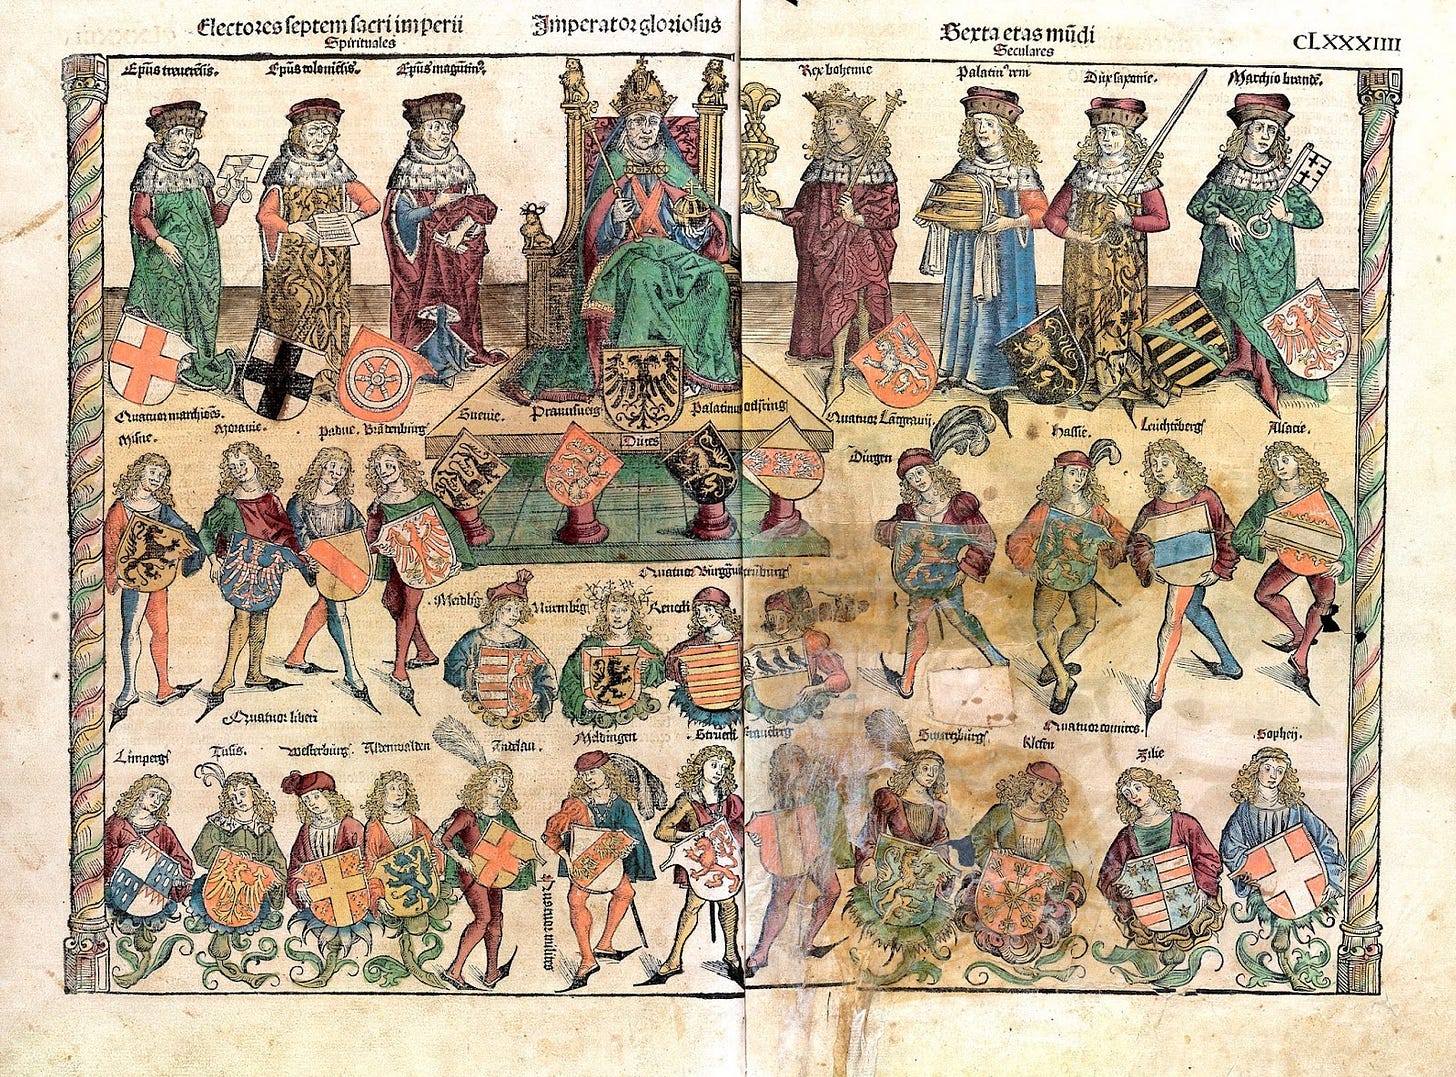 Electores septem sacri imperii
Spirituales
Imperator gloriosus
Sexta etas mũdi
Seculares
CLXXXIIII
Epũs treverẽsis.
Epũs coloniẽsis.
Epũs magũtin⁹.
Rex bohemie
Palatin⁹ reni
Dux saxonie.
Marchio brandẽ.
Quatuor marchiões.
Misne.
Moravie.
Padue.
Brãdenburg
Suevie.
Praunsueig
Palatinus
othring
Duces
Quatuor Lãtgravij.
Dürgen
Hassie.
Leuchtẽberg
Alsacie.
Quatuor
Meidbg
Nürmbg
Reneck
Quatuor liberi
Limperg
Tusis.
Westerburg.
Aldenwalden
Andlau.
Meldingen
Strueck
Quatuor comites.
Swartzburg
Klefen
Zilie
Sophey.
milites